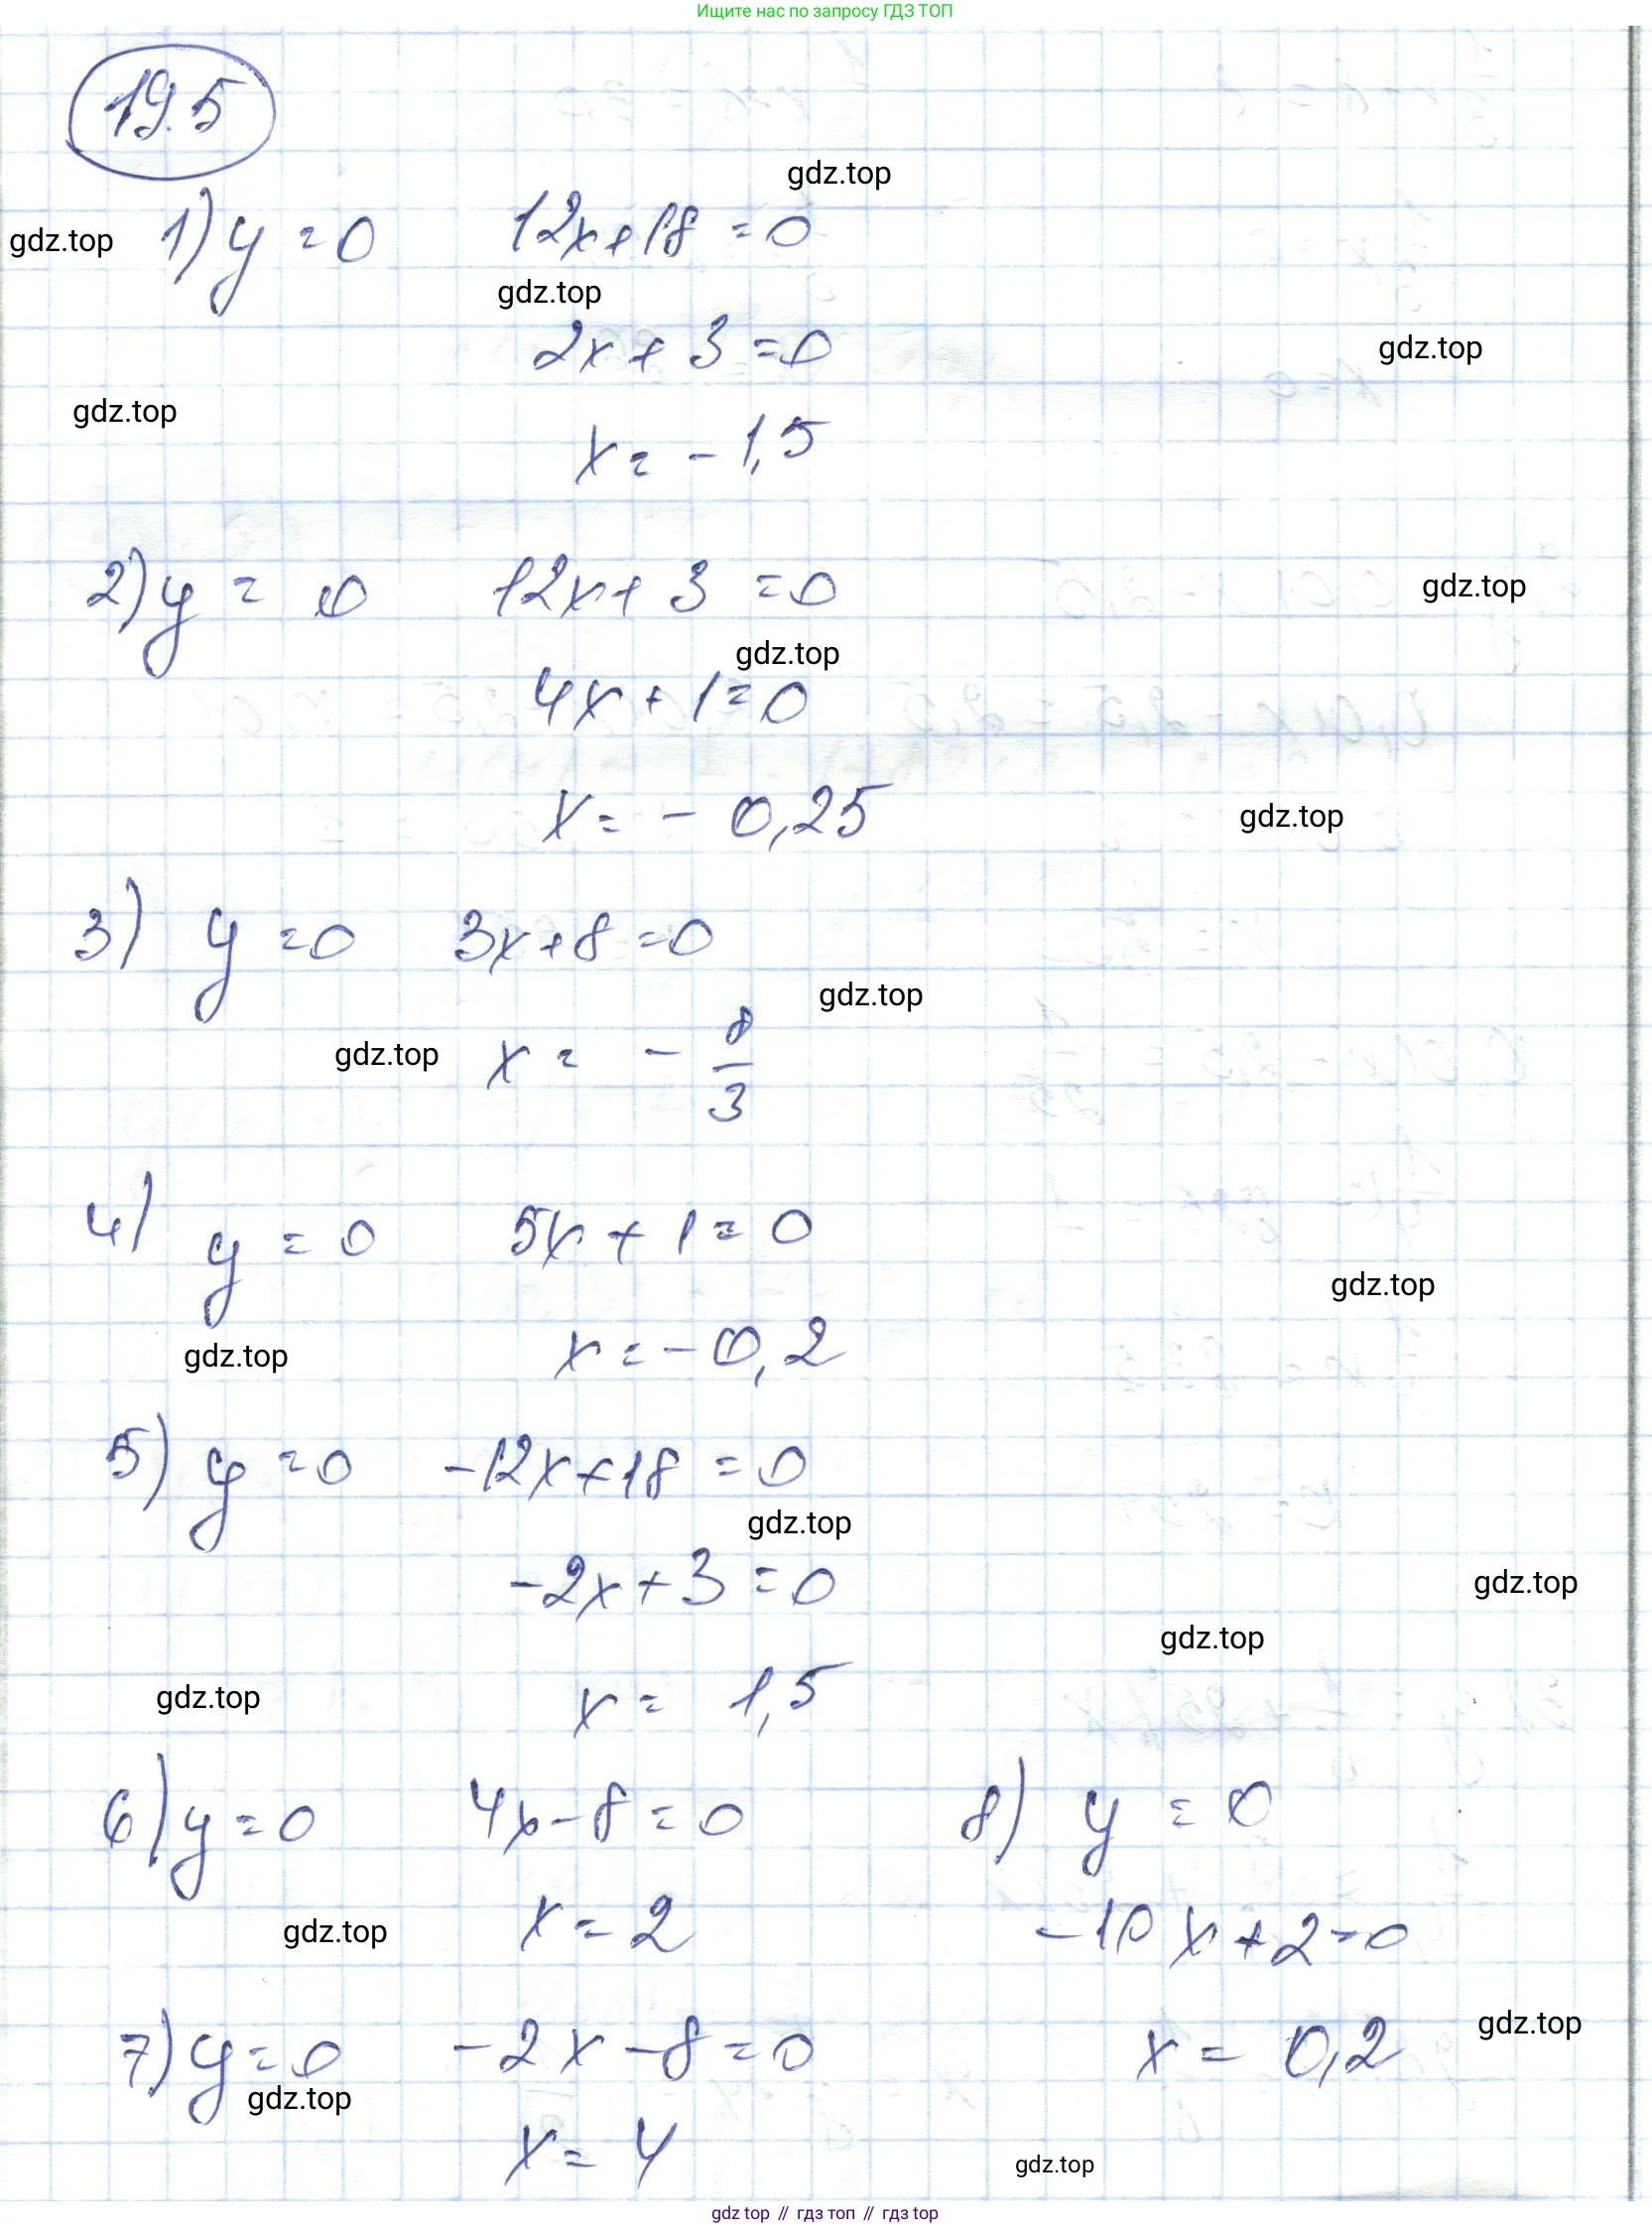 Ищите нас по запросу ГДЗ ТОП
19.5
gdz.top
gdz.top 1) y = 0 12x+18 = 0
gdz.top
2x + 3 = 0
gdz.top
gdz.top
x = - 1,5
2) y = 0 12x + 3 = 0
gdz.top
gdz.top
4x + 1 = 0
x = - 0,25
gdz.top
3) y = 0 3x + 8 = 0
gdz.top
gdz.top x = - 8/3
4) y = 0 5x + 1 = 0
gdz.top
gdz.top x = - 0,2
5) y = 0 -12x + 18 = 0
gdz.top
-2x + 3 = 0
gdz.top
gdz.top
gdz.top x = 1,5
6) y = 0 4x - 8 = 0
x = 2
gdz.top
8) y = 0
-10x + 2 = 0
x = 0,2
gdz.top
7) y = 0 -2x - 8 = 0
gdz.top
x = 4
gdz.top
gdz top // гдз топ // gdz top